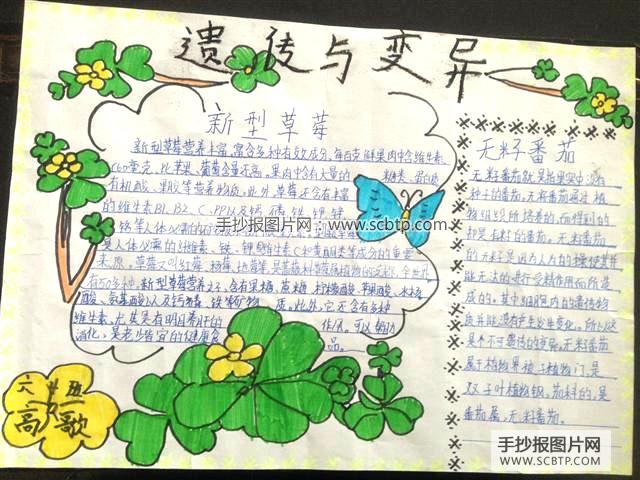 遗传与变异
新型草莓
新型草莓营养丰富,富含多种有效成分,每百克鲜果肉中含维生素
C60毫克,比苹果、葡萄含量还高。果肉中含有大量的 糖类、蛋白质
有机酸、果胶等营养物质。此外,草莓还含有丰富
的维生素B1、B2、C、PP以及钙、磷、铁、钾、锌、
铬等人体必需的
是人体必需的纤维素、铁、钾、维生素C和黄酮类等成分的重要
来源。草莓又叫红莓、杨莓、地莓等,是蔷薇科草莓属植物的
有50多种。新型草莓
酸、氨基酸以及钙 磷、铁等矿物 质。此外,它还含有多种
维生素,尤其是有明目养肝的 作用,可以帮助
消化,是老少皆宜的健康食 品。
无籽番茄
无籽番茄就是指果实中没有
种子的番茄。无籽番茄通过植
物组织所培养的,而得到的
却是无籽的番茄。无籽番茄
的无籽是因为人为的操使其并
能无法的进行受精作用而所造
成的。其中细胞内的遗传物
质并
是不可遗传的变异。无籽番茄
属于植物界被子植物门,是
双子叶植物钢。茄科的,是
番茄属。无籽番茄。
六 班
高歌
手抄报图片网
www.scbtp.com
手抄报图片网
WWW.SCBTP.COM